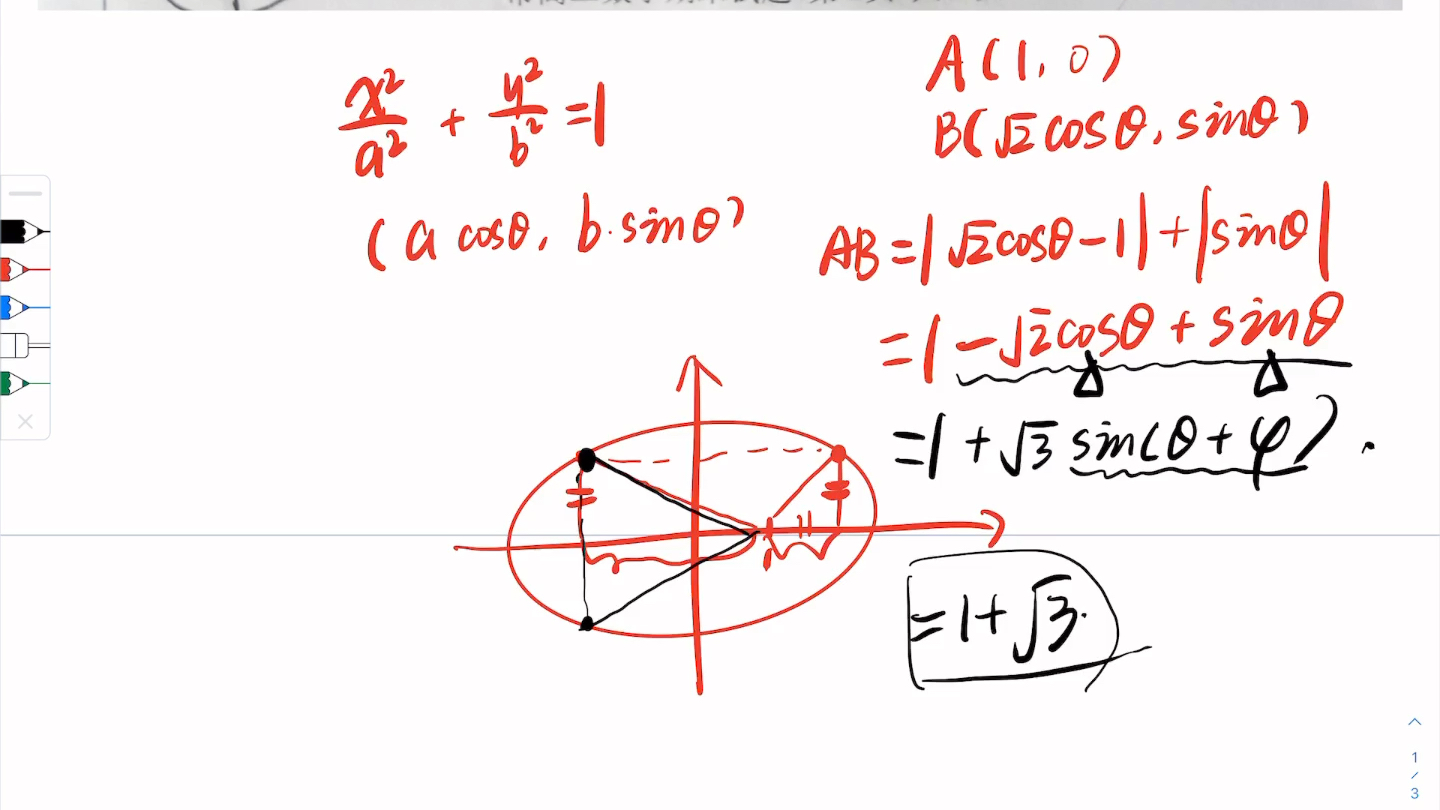 x²/a² + y²/b² = 1
(a cosθ, b·sinθ)
A(1, 0)
B(√2 cosθ, sinθ)
AB = |√2cosθ-1| + |sinθ|
= 1 - √2cosθ + sinθ
= 1 + √3 sin(θ+φ).
= 1+√3.
1
/
3